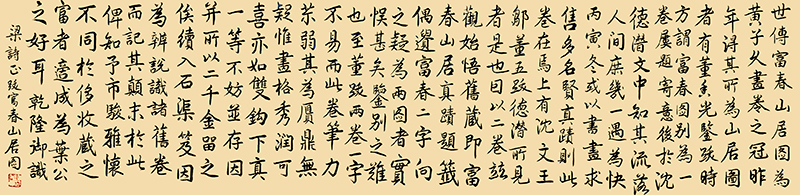 世傳富春山居圖為
黃子久畫卷之冠昨
年得其所為山居圖
者有董香光鑒跋時
方謂富春圖別為一
卷屢題寄意後於沈
德潛文中知其流落
人間庶幾一遇為快
丙寅冬或以書畫求
售多名賢真蹟則此
卷在焉上有沈文王
鄒董五跋德潛所見
者是也因以二卷並
觀始悟舊藏即富
春山居真蹟題籤
偶遺富春二字向
之疑為兩圖者實
悮甚矣鑒別之難
也至董跋兩卷一字
不易而此卷筆力
苶弱其為贗鼎無
疑惟畫格秀潤可
喜亦如雙鉤下真
一等不妨並存因
并所以二千金留之
俟續入石渠笈因
為辨說識諸舊卷
而記其顛末於此
俾知予市駿雅懷
不同於侈收藏之
富者適成為葉公
之好耳 乾隆御識
梁詩正跋富春山居圖